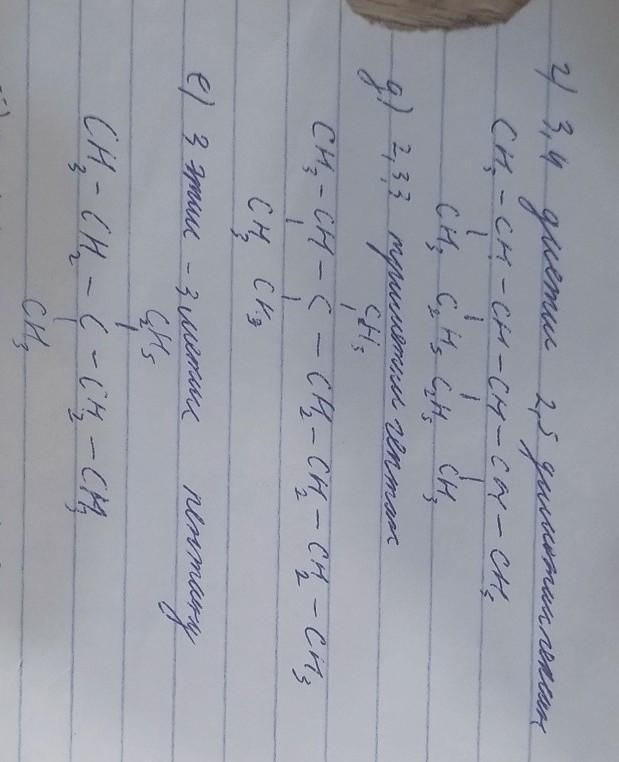 г) 3,4 диэтил 2,5 диметилгексан
CH₃ – CH – CH – CH – CH – CH₃
CH₃ C₂H₅ C₂H₅ CH₃
д) 2,3,3 триметилгептан
CH₃
CH₃ – CH – C – CH₂ – CH₂ – CH₂ – CH₃
CH₃ CH₃
е) 3 этил – 3 метил пентану
C₂H₅
CH₃ – CH₂ – C – CH₂ – CH₃
CH₃